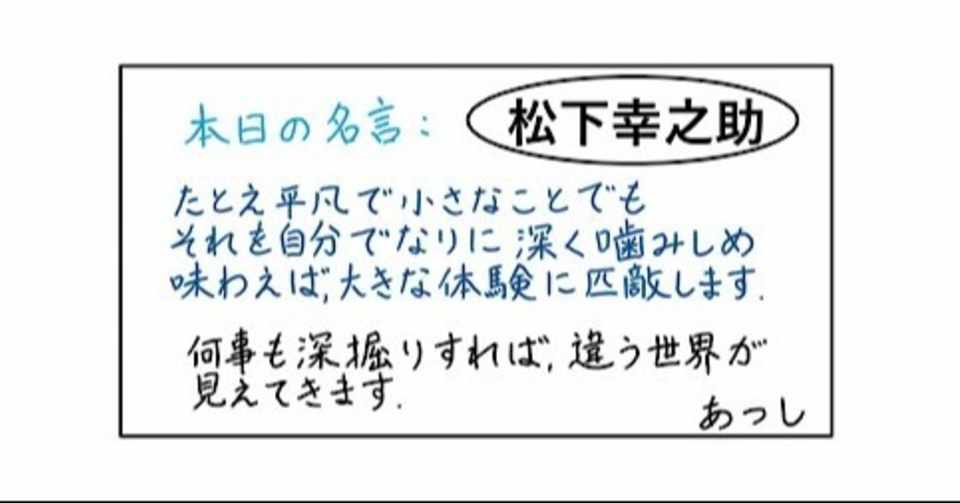 本日の名言: 松下幸之助
たとえ平凡で小さなことでも
それを自分でなりに深く噛みしめ
味わえば,大きな体験に匹敵します.
何事も深掘りすれば,違う世界が
見えてきます.
あっし